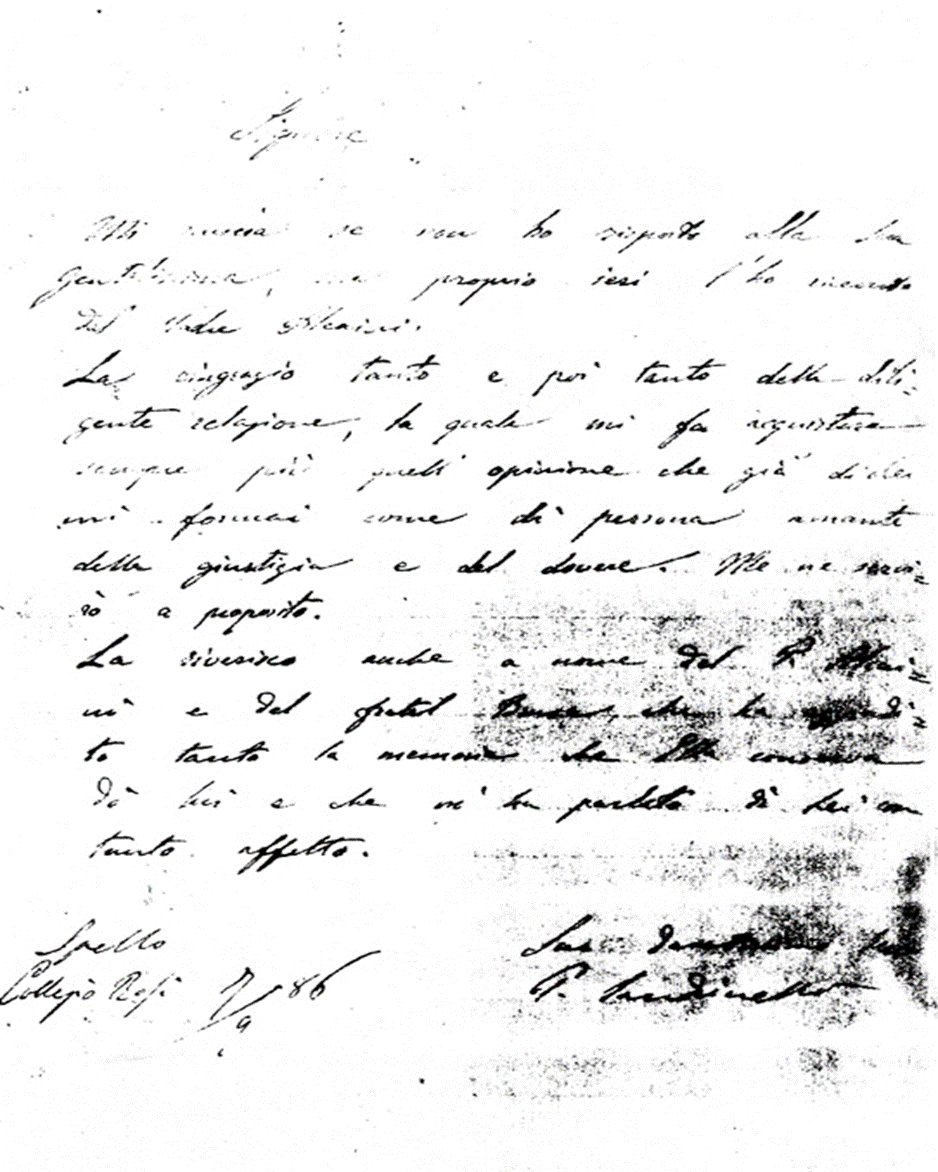 Signore
Mi scusia se non ho risposto alla sua
gentilissima, ma proprio ieri l'ho ricevuta
dal Padre
La ringrazio tanto e poi tanto della dili-
gente relazione, la quale mi fa acquistare
sempre più quell'opinione che già di lei
mi formai come di persona amante
della giustizia e del dovere. Me ne servi-
rò a proposito.
La riverisco anche a nome del P.
ni e del fratel che ha
to tanto la memoria che Ella conserva
di lui e che mi ha parlato di Lei con
tanto affetto.
Spello
Collegio Rosi 7/9 86
Suo
P.